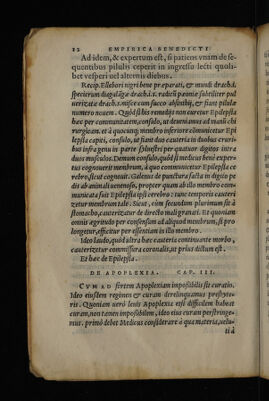 12 EMPIRICA BENEDICTI
Ad idem, & expertum est, si patiens unam de se-
quentibus pilulis ceperit in ingressu lecti quoli-
bet vesperi vel alternis diebus.
Recip. Ellebori nigri bene præparati, & mundi drach.i.
specierum drach.i.s. radicū pæoniæ subtiliter pul
uerizatæ drach.s. misce cum succo absinthij, & fiant pilulæ
numero nouem. Quòd si his remedijs non curetur Epilepsia
hæc per communitatem, consulo, ut deueniamus ad manū chi
rurgicam. et à quocunq; membro inferiore cōmunicetur Epi
lepsia capiti, consulo, ut fiant duo cauteria in duobus cruri-
bus infra genu in parte syluestri per quatuor digitos intra
duos musculos. Demum consulo, quòd si medicus benè exper-
tus cognouerit membrum, à quo communicetur Epilepsia ce
rebro, sicut cognouit Galenus de punctura facta in digito pe
dis ab animali uenenoso, propter quam ab illo membro com-
municata fuit Epilepsia ipsi cerebro: tunc temporis cauteri
zetur membrum tale. Sicut, cùm secundum plurimum sit à
stomacho, cauterizetur de directo maligranati. Et quoniam
omnis agritudo per consensum ad aliquod membrum, si pro
longetur, efficitur per essentiam in illo membro.
Ideo laudo, quòd ultra hæc cauteria continuato morbo,
cauterizetur commissura coronalis, ut prius dictum est.
Et hæc de Epilepsia.
DE APOPLEXIA. CAP. III.
CVM AD fortem Apoplexiam impoßibilis sit curatio.
Ideo eiusdem regimen & curam derelinquamus presbyte-
ris. Quoniam uerò leuis Apoplexia etsi difficilem habeat
curam, non tamen impoßibilem, ideo eius curam perstringe-
mus. primò debet Medicus considerare à qua materia, uelu-
ti à